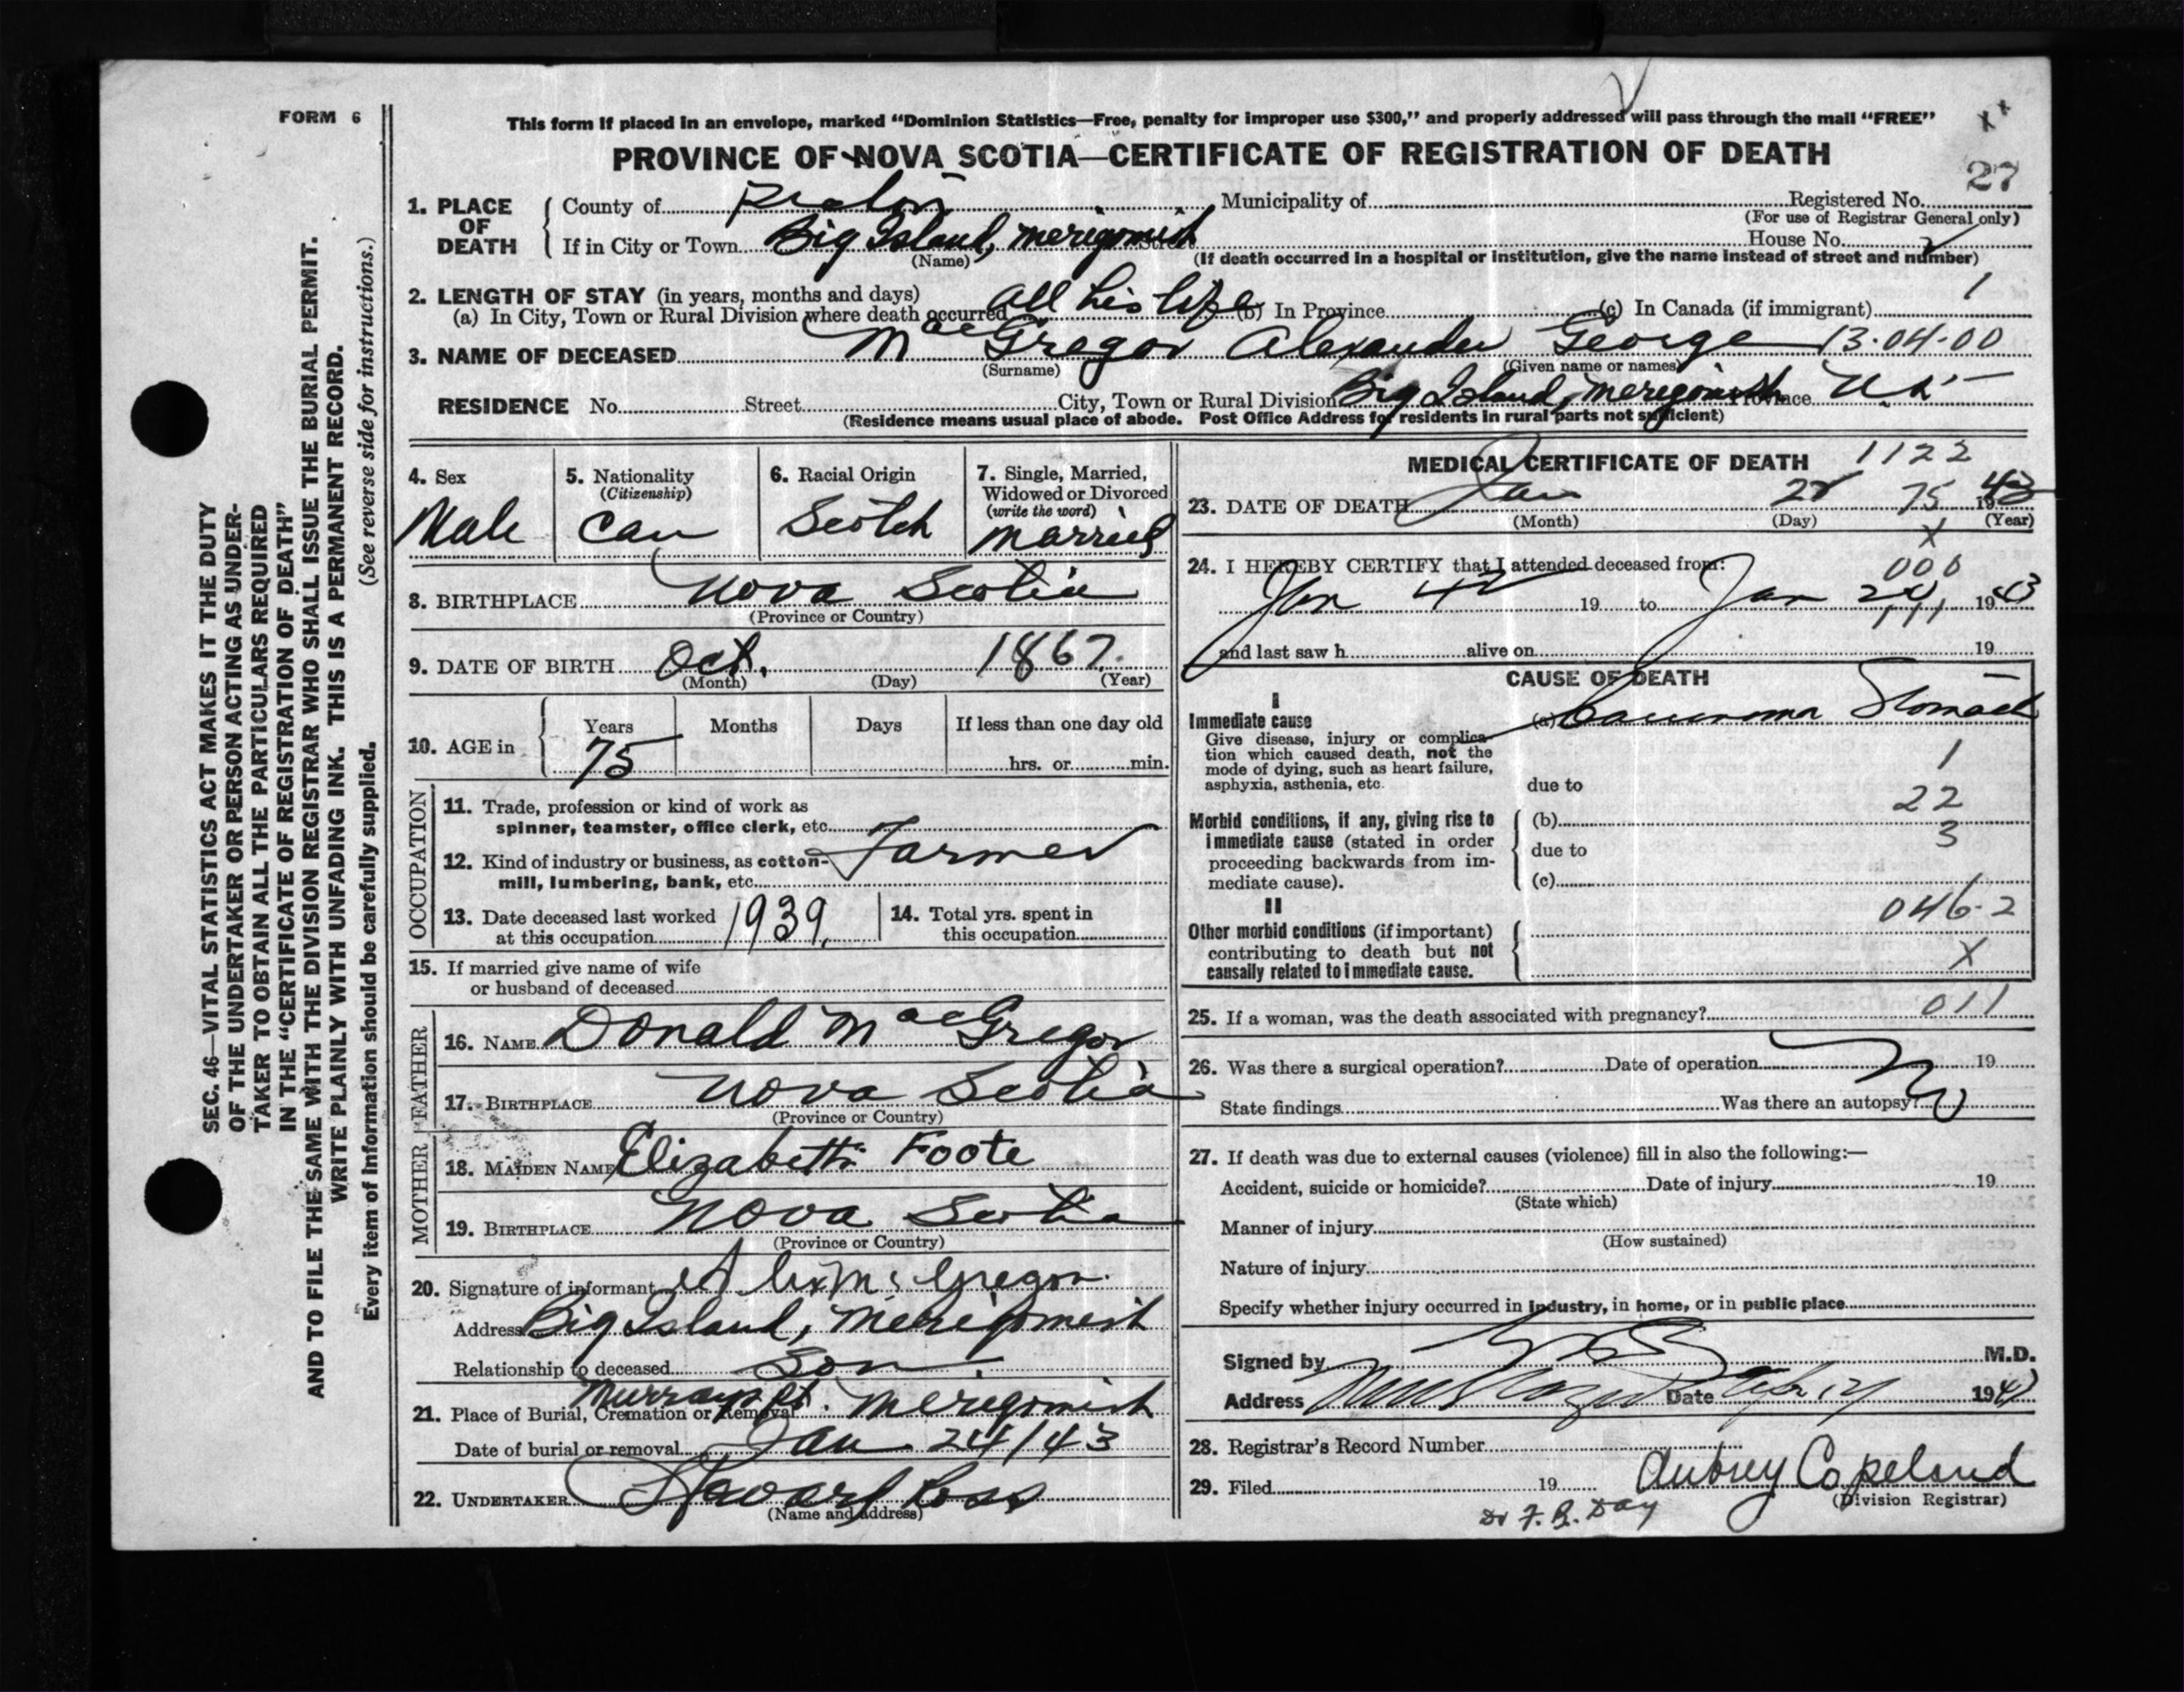 FORM 6
This form if placed in an envelope, marked "Dominion Statistics—Free, penalty for improper use $300," and properly addressed will pass through the mail "FREE"
PROVINCE OF NOVA SCOTIA—CERTIFICATE OF REGISTRATION OF DEATH
27
1. PLACE OF DEATH
County of Pictou Municipality of Registered No.
(For use of Registrar General only)
If in City or Town Big Island, Merigomish Street House No.
(Name) (If death occurred in a hospital or institution, give the name instead of street and number)
2. LENGTH OF STAY (in years, months and days)
(a) In City, Town or Rural Division where death occurred All his life (b) In Province (c) In Canada (if immigrant) 1
3. NAME OF DECEASED MacGregor Alexander George 13-04-00
(Surname) (Given name or names)
RESIDENCE No. Street City, Town or Rural Division Big Island, Merigomish Province N.S.
(Residence means usual place of abode. Post Office Address for residents in rural parts not sufficient)
4. Sex
Male
5. Nationality
(Citizenship)
Can
6. Racial Origin
Scotch
7. Single, Married,
Widowed or Divorced
(write the word)
Married
8. BIRTHPLACE Nova Scotia
(Province or Country)
9. DATE OF BIRTH Oct. 1867
(Month) (Day) (Year)
10. AGE in
Years Months Days If less than one day old
75 hrs. or min.
OCCUPATION
11. Trade, profession or kind of work as
spinner, teamster, office clerk, etc.
Farmer
12. Kind of industry or business, as cotton-
mill, lumbering, bank, etc.
13. Date deceased last worked
at this occupation 1939.
14. Total yrs. spent in
this occupation
15. If married give name of wife
or husband of deceased
FATHER
16. NAME Donald MacGregor
17. BIRTHPLACE Nova Scotia
(Province or Country)
MOTHER
18. MAIDEN NAME Elizabeth Foote
19. BIRTHPLACE Nova Scotia
(Province or Country)
20. Signature of informant Alex McGregor
Address Big Island, Merigomish
Relationship to deceased Son
21. Place of Burial, Cremation or Removal Murrays Pt. Merigomish
Date of burial or removal Jan 24/43
22. UNDERTAKER Howard Ross
(Name and address)
MEDICAL CERTIFICATE OF DEATH 1122
23. DATE OF DEATH Jan 22 75 1943
(Month) (Day) (Year)
X
24. I HEREBY CERTIFY that I attended deceased from:
000
Jan 42 19 to Jan 1943
111
and last saw h alive on 19
CAUSE OF DEATH
I
Immediate cause
(a) Carcinoma Stomach
Give disease, injury or complica-
tion which caused death, not the
mode of dying, such as heart failure,
asphyxia, asthenia, etc.
1
due to
22
Morbid conditions, if any, giving rise to
immediate cause (stated in order
proceeding backwards from im-
mediate cause).
(b)
due to
3
(c)
II
046-2
Other morbid conditions (if important)
contributing to death but not
causally related to immediate cause.
X
25. If a woman, was the death associated with pregnancy? 011
26. Was there a surgical operation? Date of operation 19
State findings Was there an autopsy? No
27. If death was due to external causes (violence) fill in also the following:—
Accident, suicide or homicide? Date of injury 19
(State which)
Manner of injury
(How sustained)
Nature of injury
Specify whether injury occurred in industry, in home, or in public place
Signed by M.D.
Address Date 194
28. Registrar's Record Number
29. Filed 19 Aubrey Copeland
(Division Registrar)
Dr F. B. Day
SEC. 46—VITAL STATISTICS ACT MAKES IT THE DUTY
OF THE UNDERTAKER OR PERSON ACTING AS UNDER-
TAKER TO OBTAIN ALL THE PARTICULARS REQUIRED
IN THE "CERTIFICATE OF REGISTRATION OF DEATH"
AND TO FILE THE SAME WITH THE DIVISION REGISTRAR WHO SHALL ISSUE THE BURIAL PERMIT.
WRITE PLAINLY WITH UNFADING INK. THIS IS A PERMANENT RECORD.
Every item of information should be carefully supplied. (See reverse side for instructions.)